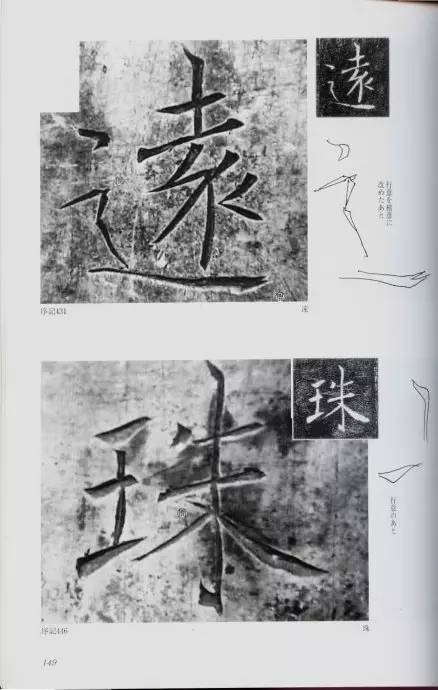 遠
遠
行意を楷意に
改めたあと
序記431
遠
珠
珠
行意のあと
序記446
珠
149